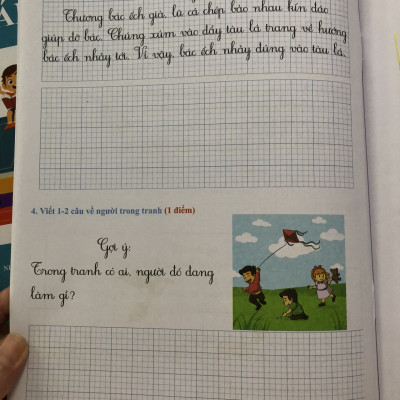 Thương bác ếch già, lũ cá chép bảo nhau kín đáo
giúp đỡ bác. Chúng xúm vào đẩy tàu lá trang về hướng
bác ếch nhảy tới. Vì vậy, bác ếch nhảy đúng vào tàu lá.
4. Viết 1-2 câu về người trong tranh (1 điểm)
Gợi ý:
Trong tranh có ai, người đó đang
làm gì?